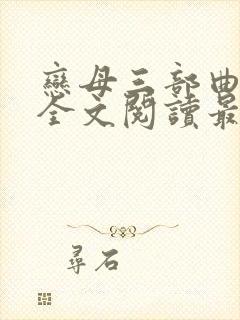 戀母三部曲
全文閱讀最
尋石